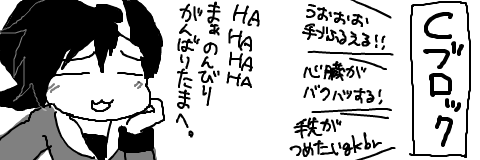 Cブロック
うおおお
手がふるえる!!
心臓が
バクハツする!
手先が
つめたいgkbr
HA
HA
HA
HA
まぁのんびり
がんばりたまへ。